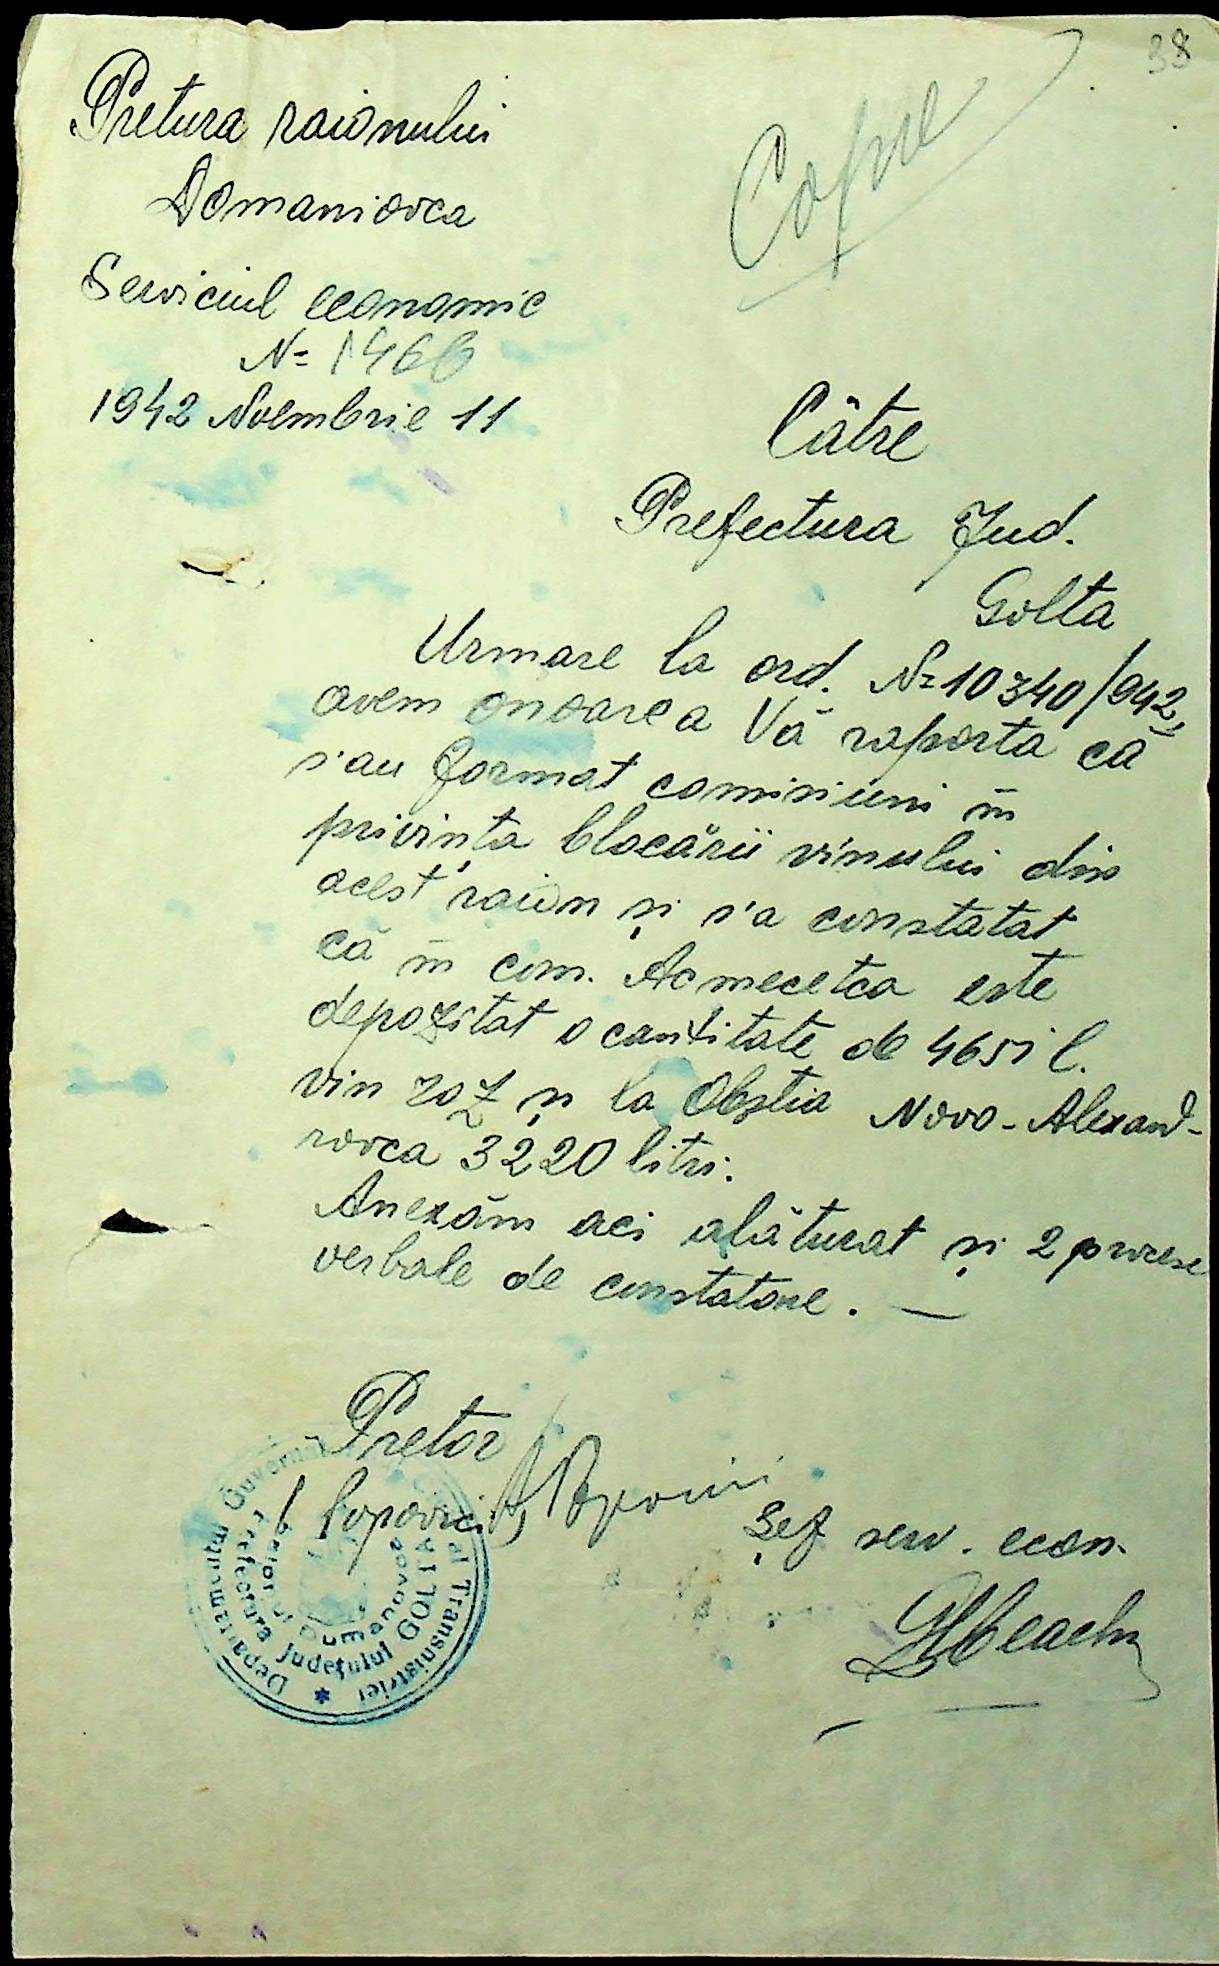 38
Copie
Pretura raionului
Domaniovca
Serviciul economic
№ 1466
1942 Noembrie 11
Către
Prefectura Jud.
Golta
Urmare la ord. № 10340/942,
avem onoarea Vă raporta că
s'au format comisiuni în
privința blocării vinului din
acest raion și s'a constatat
că în com. Acmecetca este
depozitat o cantitate de 4651 l.
vin roz și la Obștia Novo-Alexand-
rovca 3220 litri.
Anexăm aci alăturat și 2 procese
verbale de constatare. —
Pretor
Popovici
Șef serv. econ.
Departamentul Guvernământul Transnistriei
Prefectura Județului GOLTA